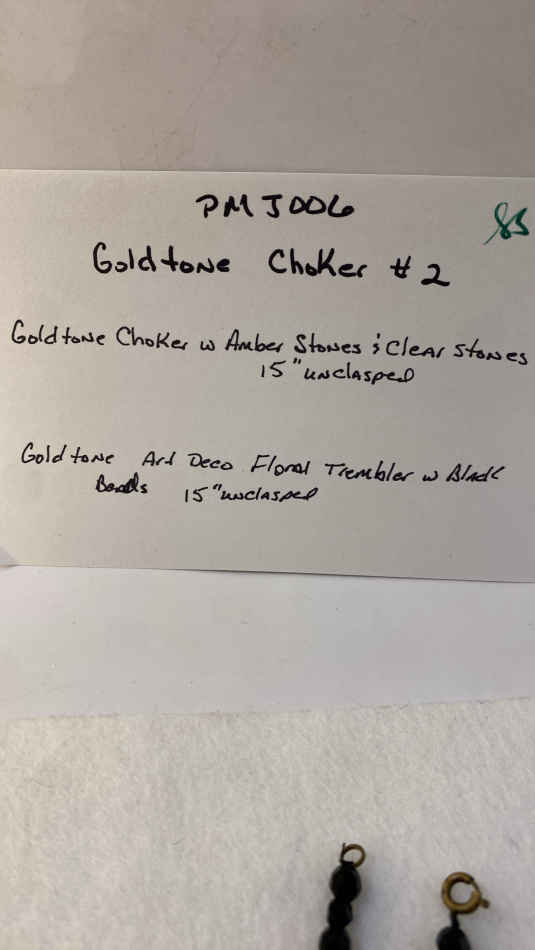 PMJ006
85
Goldtone Choker #2
Goldtone Choker w Amber Stones & Clear Stones
15" unclasped
Goldtone Art Deco Floral Trembler w Black
Beads 15" unclasped